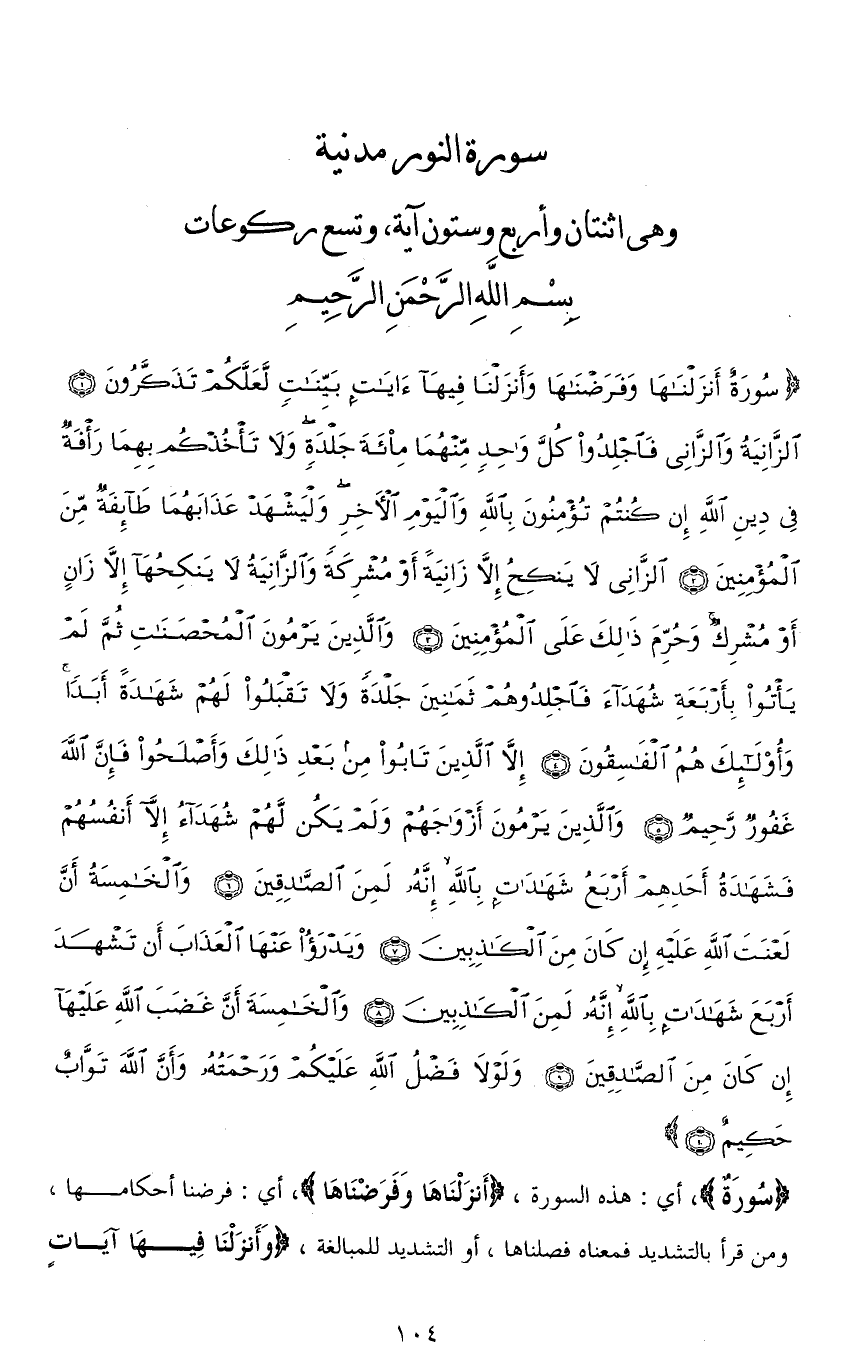 سورة النور مدنية
وهى اثنتان وأربع وستون آية، وتسع ركوعات
بِسْمِ اللَّهِ الرَّحْمَنِ الرَّحِيمِ
﴿ سُورَةٌ أَنزَلْنَـٰهَا وَفَرَضْنَـٰهَا وَأَنزَلْنَا فِيهَآ ءَايَـٰتٍۭ بَيِّنَـٰتٍ لَّعَلَّكُمْ تَذَكَّرُونَ ۝١
ٱلزَّانِيَةُ وَٱلزَّانِى فَٱجْلِدُوا۟ كُلَّ وَٰحِدٍ مِّنْهُمَا مِا۟ئَةَ جَلْدَةٍۖ وَلَا تَأْخُذْكُم بِهِمَا رَأْفَةٌ
فِى دِينِ ٱللَّهِ إِن كُنتُمْ تُؤْمِنُونَ بِٱللَّهِ وَٱلْيَوْمِ ٱلْأَخِرِۖ وَلْيَشْهَدْ عَذَابَهُمَا طَآئِفَةٌ مِّنَ
ٱلْمُؤْمِنِينَ ۝٢ ٱلزَّانِى لَا يَنكِحُ إِلَّا زَانِيَةً أَوْ مُشْرِكَةً وَٱلزَّانِيَةُ لَا يَنكِحُهَآ إِلَّا زَانٍ
أَوْ مُشْرِكٌۚ وَحُرِّمَ ذَٰلِكَ عَلَى ٱلْمُؤْمِنِينَ ۝٣ وَٱلَّذِينَ يَرْمُونَ ٱلْمُحْصَنَـٰتِ ثُمَّ لَمْ
يَأْتُوا۟ بِأَرْبَعَةِ شُهَدَآءَ فَٱجْلِدُوهُمْ ثَمَـٰنِينَ جَلْدَةً وَلَا تَقْبَلُوا۟ لَهُمْ شَهَـٰدَةً أَبَدًاۚ
وَأُو۟لَـٰٓئِكَ هُمُ ٱلْفَـٰسِقُونَ ۝٤ إِلَّا ٱلَّذِينَ تَابُوا۟ مِنۢ بَعْدِ ذَٰلِكَ وَأَصْلَحُوا۟ فَإِنَّ ٱللَّهَ
غَفُورٌ رَّحِيمٌ ۝٥ وَٱلَّذِينَ يَرْمُونَ أَزْوَٰجَهُمْ وَلَمْ يَكُن لَّهُمْ شُهَدَآءُ إِلَّآ أَنفُسُهُمْ
فَشَهَـٰدَةُ أَحَدِهِمْ أَرْبَعُ شَهَـٰدَٰتٍۭ بِٱللَّهِۙ إِنَّهُۥ لَمِنَ ٱلصَّـٰدِقِينَ ۝٦ وَٱلْخَـٰمِسَةُ أَنَّ
لَعْنَتَ ٱللَّهِ عَلَيْهِ إِن كَانَ مِنَ ٱلْكَـٰذِبِينَ ۝٧ وَيَدْرَؤُا۟ عَنْهَا ٱلْعَذَابَ أَن تَشْهَدَ
أَرْبَعَ شَهَـٰدَٰتٍۭ بِٱللَّهِۙ إِنَّهُۥ لَمِنَ ٱلْكَـٰذِبِينَ ۝٨ وَٱلْخَـٰمِسَةَ أَنَّ غَضَبَ ٱللَّهِ عَلَيْهَآ
إِن كَانَ مِنَ ٱلصَّـٰدِقِينَ ۝٩ وَلَوْلَا فَضْلُ ٱللَّهِ عَلَيْكُمْ وَرَحْمَتُهُۥ وَأَنَّ ٱللَّهَ تَوَّابٌ
حَكِيمٌ ۝١٠﴾
﴿سُورَةٌ﴾، أي : هذه السورة ، ﴿أَنزَلْنَاهَا وَفَرَضْنَاهَا﴾، أي : فرضنا أحكامها ،
ومن قرأ بالتشديد فمعناه فصلناها ، أو التشديد للمبالغة ، ﴿وَأَنزَلْنَا فِيهَا آيَاتٍ
١٠٤